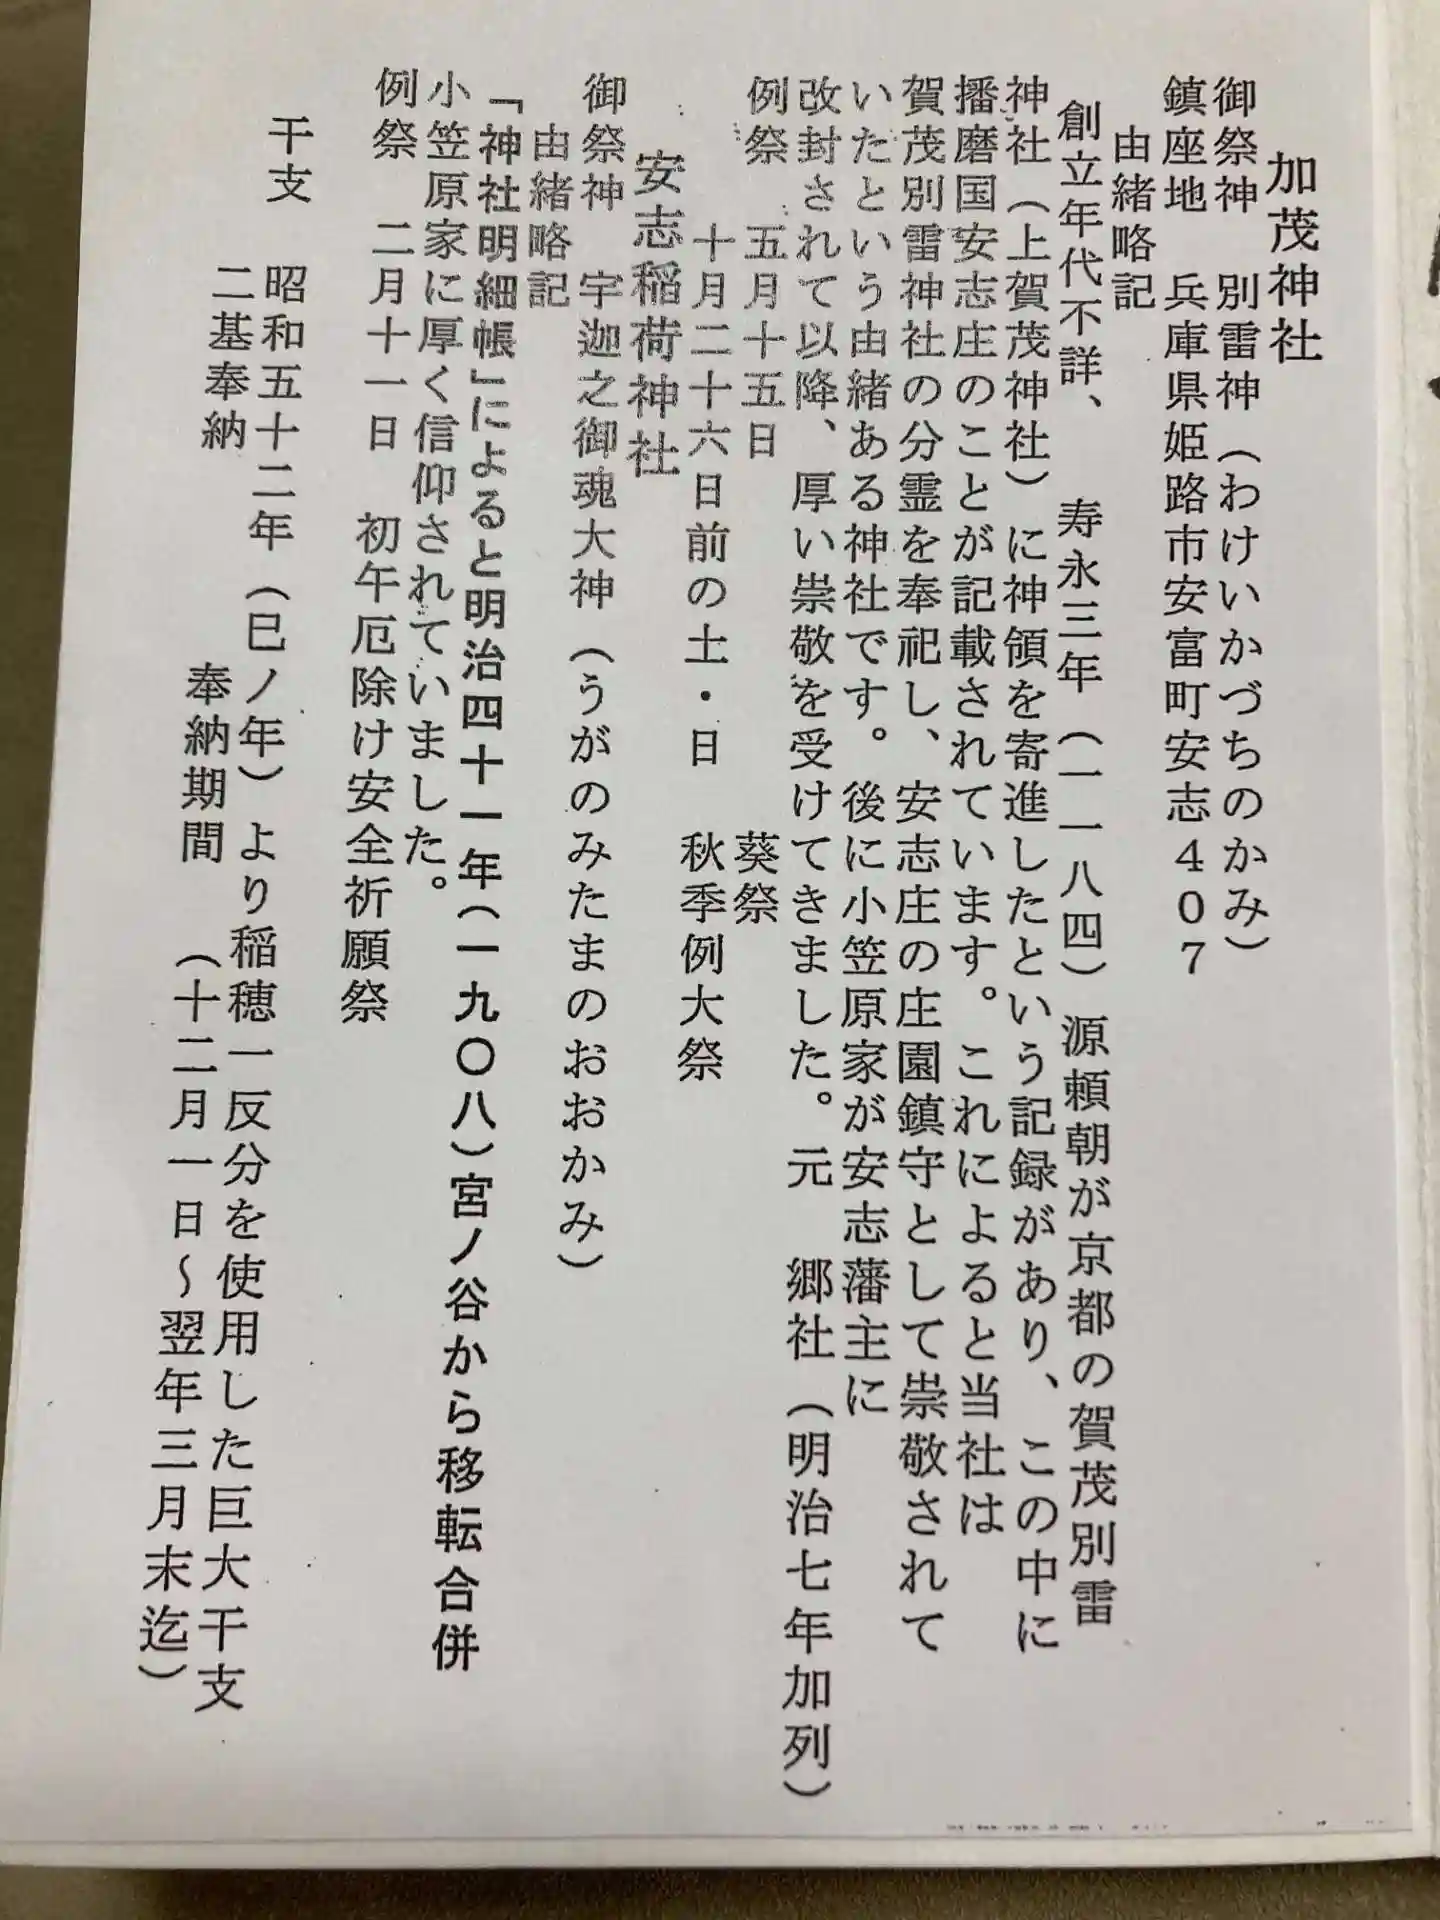 加茂神社
御祭神　別雷神（わけいかづちのかみ）
鎮座地　兵庫県姫路市安富町安志４０７
由緒略記
創立年代不詳、　寿永三年　（一一八四）　源頼朝が京都の賀茂別雷
神社（上賀茂神社）に神領を寄進したという記録があり、この中に
播磨国安志庄のことが記載されています。これによると当社は
賀茂別雷神社の分霊を奉祀し、安志庄の庄園鎮守として崇敬されて
いたという由緒ある神社です。後に小笠原家が安志藩主に
改封されて以降、厚い崇敬を受けてきました。元　郷社（明治七年加列）
例祭　五月十五日　葵祭
十月二十六日前の土・日　秋季例大祭
安志稲荷神社
御祭神　宇迦之御魂大神（うがのみたまのおおかみ）
由緒略記
「神社明細帳」によると明治四十一年（一九〇八）宮ノ谷から移転合併
小笠原家に厚く信仰されていました。
例祭　二月十一日　初午厄除け安全祈願祭
干支　昭和五十二年（巳ノ年）より稲穂一反分を使用した巨大干支
二基奉納　奉納期間　（十二月一日～翌年三月末迄）